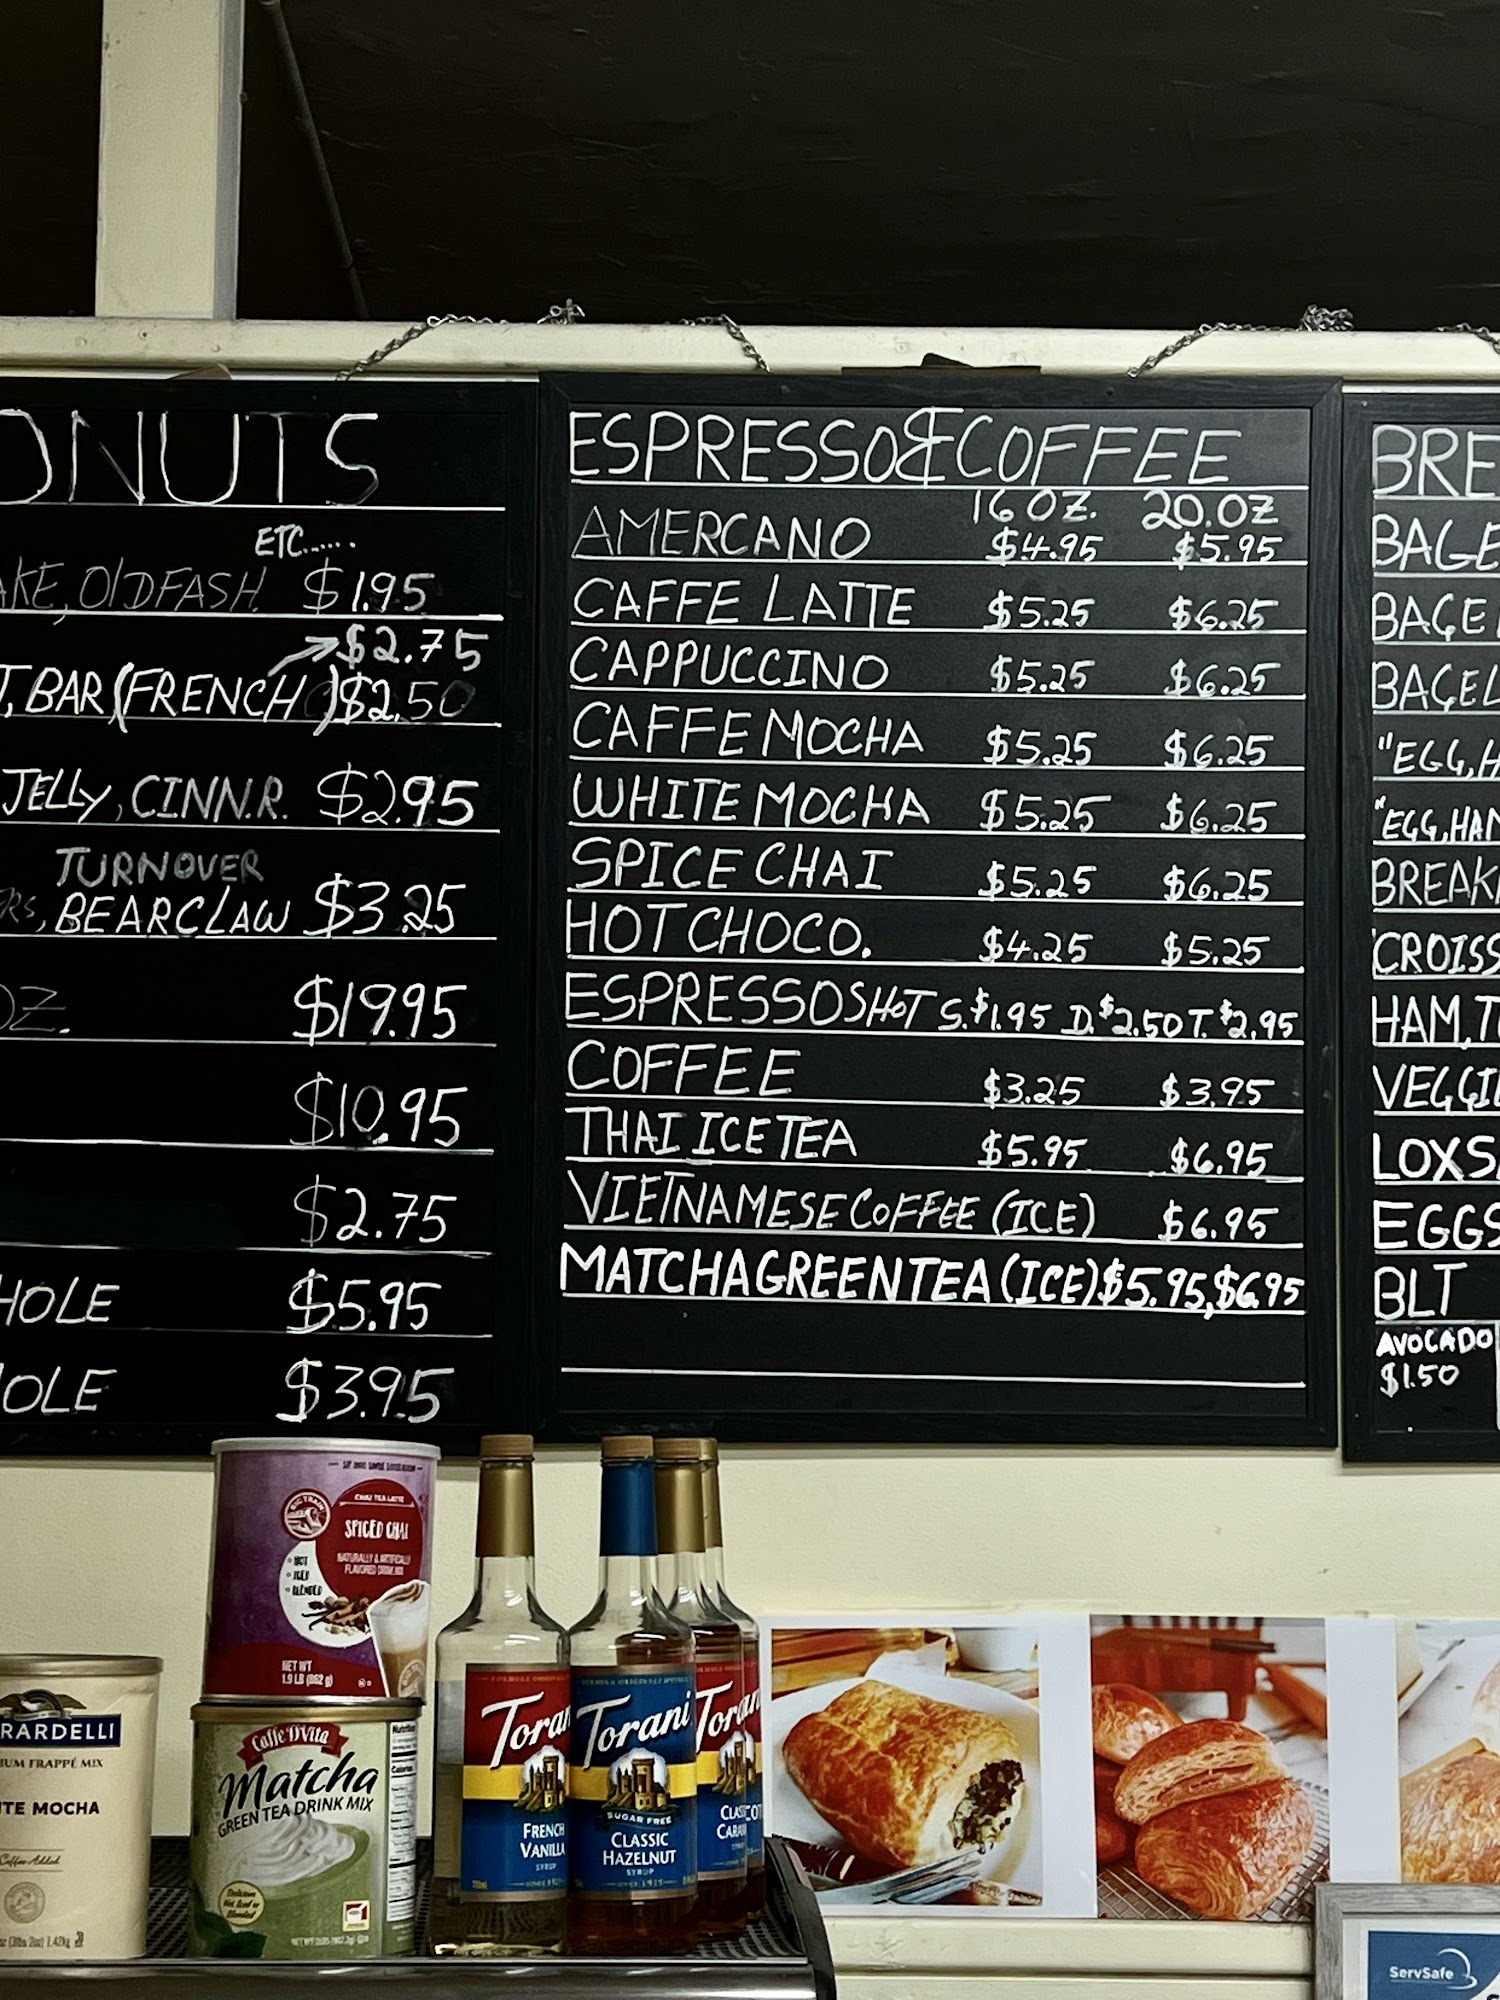 ONUTS
ETC.....
AKE, OLDFASH. $1.95
$2.75
T, BAR (FRENCH) $2.50
JELLY, CINN.R. $2.95
TURNOVER
RS, BEARCLAW $3.25
OZ. $19.95
$10.95
$2.75
HOLE $5.95
HOLE $3.95
ESPRESSO & COFFEE
16 OZ. 20.OZ
AMERCANO $4.95 $5.95
CAFFE LATTE $5.25 $6.25
CAPPUCCINO $5.25 $6.25
CAFFE MOCHA $5.25 $6.25
WHITE MOCHA $5.25 $6.25
SPICE CHAI $5.25 $6.25
HOT CHOCO. $4.25 $5.25
ESPRESSO SHOT S.$1.95 D.$2.50 T.$2.95
COFFEE $3.25 $3.95
THAI ICE TEA $5.95 $6.95
VIETNAMESE COFFEE (ICE) $6.95
MATCHA GREEN TEA (ICE) $5.95, $6.95
BRE
BAGE
BAGE
BAGEL
"EGG, H
"EGG, HAM
BREAK
CROISS
HAM, T
VEGGIE
LOX S
EGGS
BLT
AVOCADO
$1.50
CHAI TEA LATTE
BIG TRAIN
SPICED CHAI
NATURALLY & ARTIFICIALLY
FLAVORED DRINK MIX
HOT
ICED
BLENDED
NET WT
1.9 LB (862 g)
RARDELLI
IUM FRAPPÉ MIX
TE MOCHA
Coffee Added
Caffe D'Vita
Matcha
GREEN TEA DRINK MIX
Nutrition
Calories
Torani
FRENCH
VANILLA
SYRUP
Torani
SUGAR FREE
CLASSIC
HAZELNUT
SYRUP
Torani
CLASSIC
CARAM
ServSafe